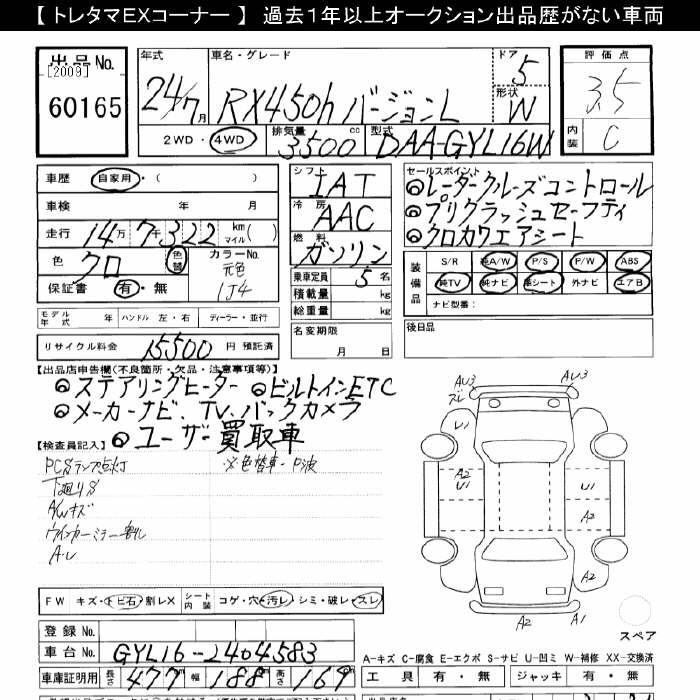 【 トレタマEXコーナー 】 過去１年以上オークション出品歴がない車両
出品No.
[2009]
60165
年式
24/7月
車名・グレード
RX450h バージョンL
ドア
5
形状
W
2WD・4WD
排気量
3500cc
型式
DAA-GYL16W
評価点
3.5
内装
C
車歴 自家用・( )
車検 年 月
走行 14万7千322 km マイル( )
色 クロ 色替
カラーNo.
元色
1J4
保証書 有・無
シフト
IAT
冷房
AAC
燃料
ガソリン
乗車定員 5 名
積載量 kg
総重量 kg
名変期限
月 日
セールスポイント
◎レーダークルーズコントロール
◎プリクラッシュセーフティ
◎クロカワエアシート
装備品
S/R 純A/W P/S P/W ABS
純TV 純ナビ 革シート 外ナビ エアB
ナビ型番：
後日品
モデル年式 年 ハンドル 左・右 ディーラー・並行
リサイクル料金 15500 円 預託済
【出品店申告欄(不良箇所・欠品・注意事項等)】
◎ステアリングヒーター ◎ビルトインETC
◎メーカーナビ、TV、バックカメラ
◎ユーザー買取車
【検査員記入】
PCSランプ点灯 ※色替車-P波
下廻りS
A/Wキズ
ウインカーミラー割れ
A・U
AU3
ズレ
AU3
U1
A2
U1
U1
A2
A2
A2
A1
スペア
FW キズ・トビ石・割レX シート内装 コゲ・穴・汚レ・シミ・破レ・スレ
登録No.
車台No. GYL16-2404583
車庫証明用 長さ 477 幅 188 高さ 169
A-キズ C-腐食 E-エクボ S-サビ U-凹ミ W-補修 XX-交換済
工具 有・無 ジャッキ 有・無